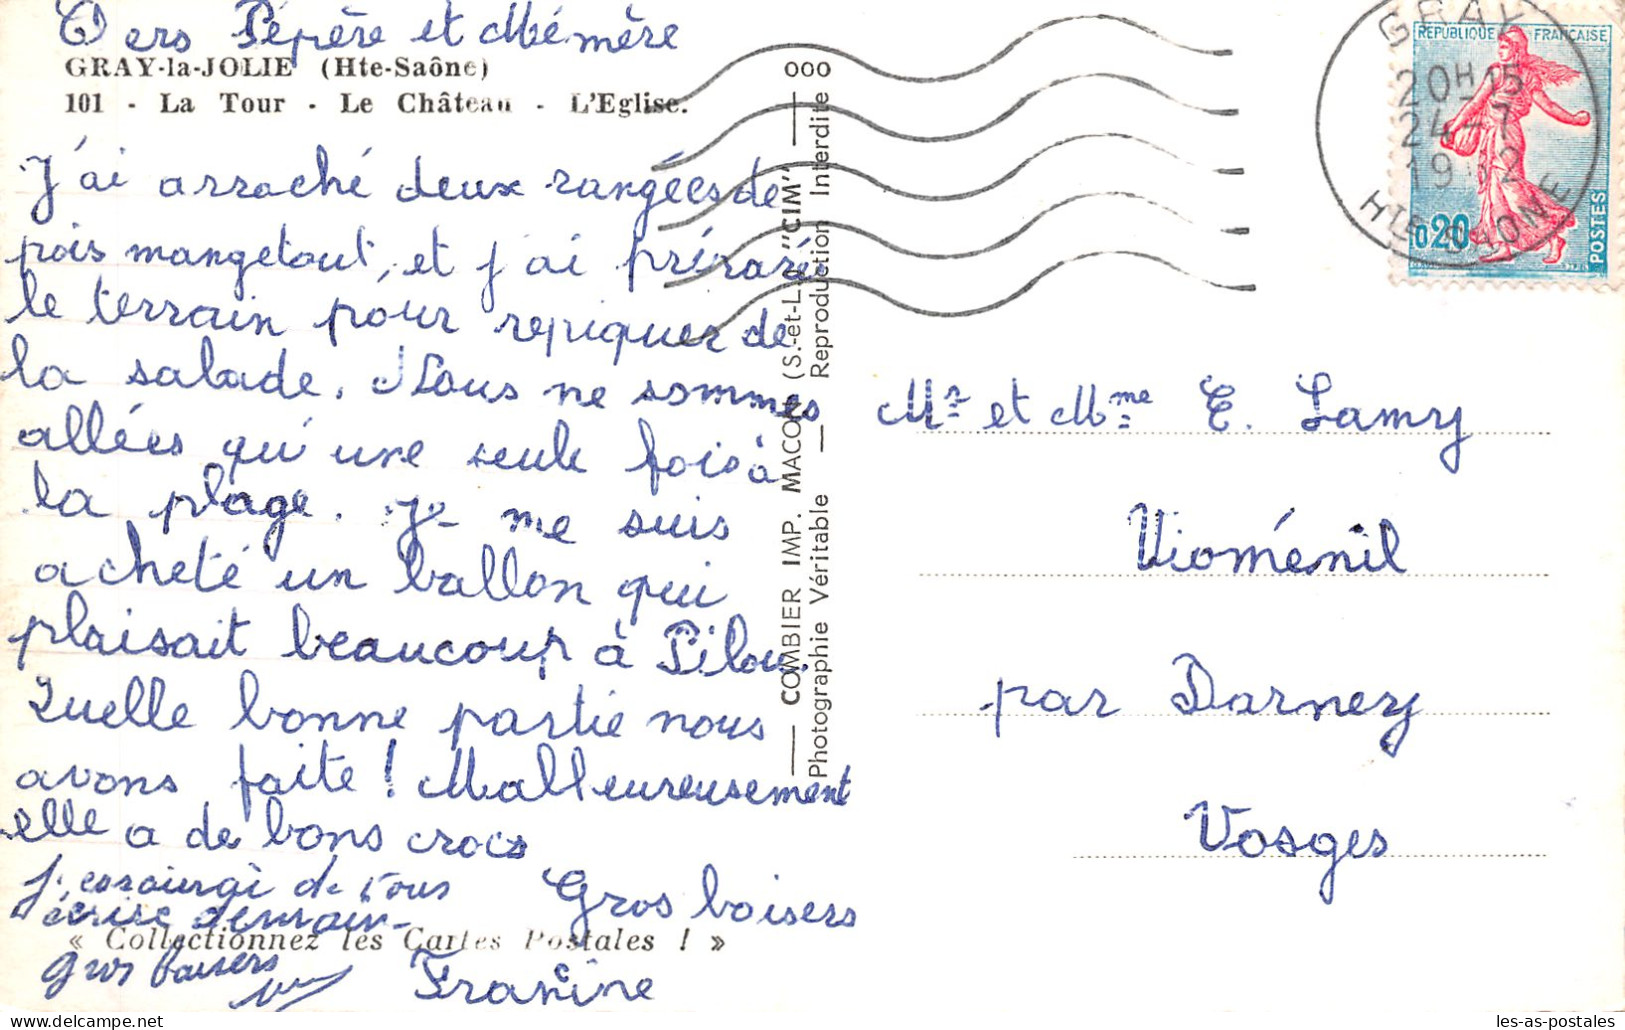 Cers Pépère et Mémère
GRAY-la-JOLIE (Hte-Saône)
101 - La Tour - Le Château - L'Eglise.
J'ai arraché deux rangées de
pois mangetout, et j'ai préparé
le terrain pour repiquer de
la salade. Nous ne sommes
allées qu'une seule fois à
la plage. Je me suis
acheté un ballon qui
plaisait beaucoup à Pilou.
Quelle bonne partie nous
avons faite ! Malleureusement
elle a de bons crocs
Gros baisers
Francine
J'essaierai de vous
écrire demain
Gros baisers
« Collectionnez les Cartes Postales ! »
COMBIER IMP. MACON (S.-et-L.) "CIM"
Photographie Véritable — Reproduction Interdite
000
GRAY
20H15
24-7
1962
HTE SAONE
REPUBLIQUE FRANÇAISE
0,20
POSTES
Mr et Mme E. Lamy
Vioménil
par Darney
Vosges
les-as-postales